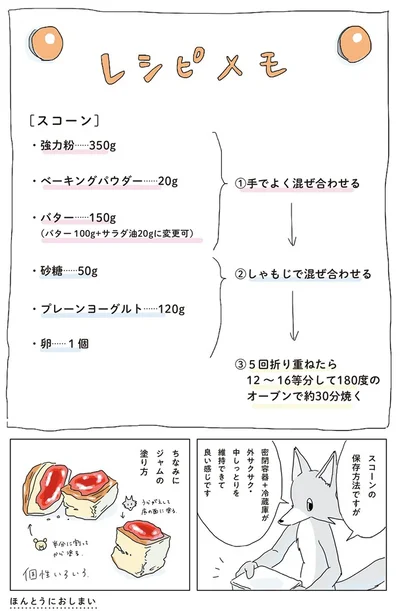 レシピメモ
[スコーン]
・強力粉……350g
・ベーキングパウダー……20g
・バター……150g
(バター100g+サラダ油20gに変更可)
・砂糖……50g
・プレーンヨーグルト……120g
・卵……1個
①手でよく混ぜ合わせる
②しゃもじで混ぜ合わせる
③5回折り重ねたら
12〜16等分して180度の
オーブンで約30分焼く
スコーンの
保存方法ですが
密閉容器+冷蔵庫が
外サクサク・
中しっとりを
維持できて
良い感じです
ちなみに
ジャムの
塗り方
うらがえして
底の面に塗る。
半分に割って
から塗る。
個性いろいろ。
ほんとうにおしまい